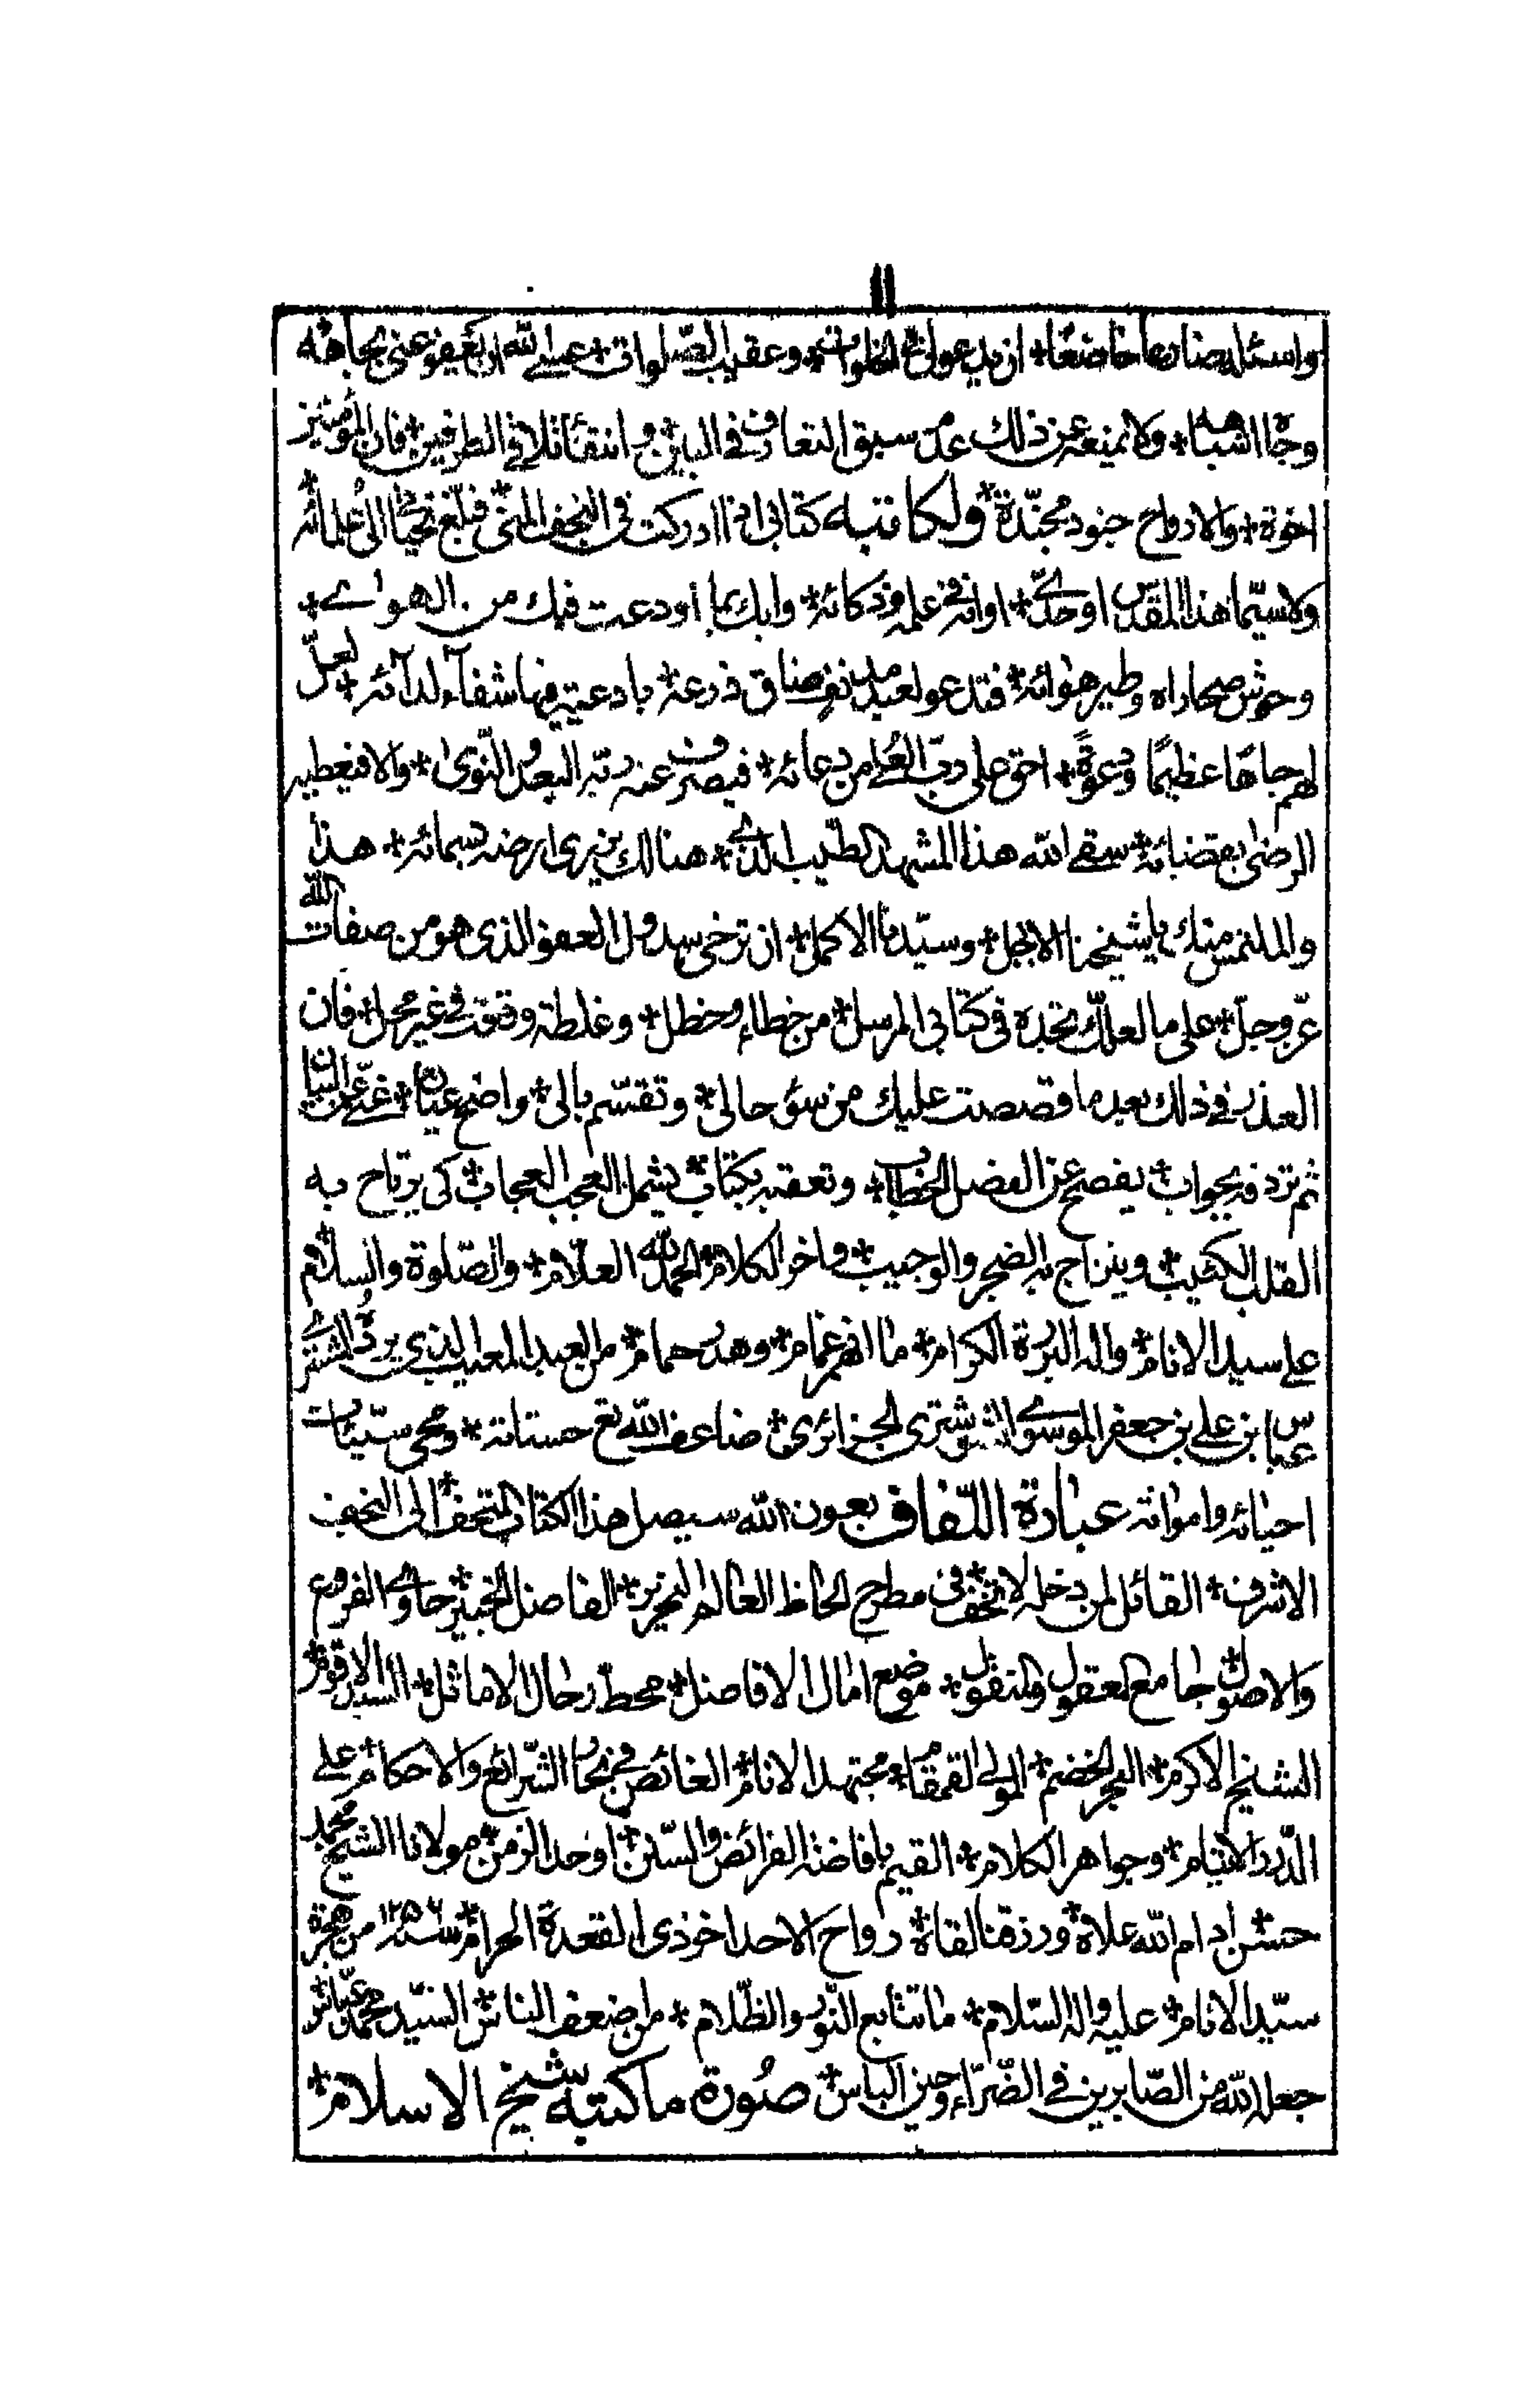 ١١
واسئله ضارعا خاضعا* ان يدعو لي في الخلوات* وعقيب الصلوات* عسى الله ان يعفو عنى بجاهه
وجاه اشباهه* ولا يمنعه عن ذلك عدم سبق التعارف فى البين* وانتفاء التلاقى فى الطرفين* فان المؤمنين
اخوة* والارواح جنود مجنّدة* ولكاتبه كتابى اذا ادركت فى النجف المنى* فبلّغ تحيّاتى الى علمائه
ولا سيّما هذا المقدّس اوحدىّ* اوانه فى علمه وذكائه* وابك بما أودعت فيك من الهوا ے*
وحوش صحاراه وطير هوائه* فتدعو لعبد مدنف ضاق ذرعه* بادعية فيها شفآء لدآئه* لعلّ
لهم جاهًا عظيمًا ودعوةً* احق على ربّ العلى من دعائه* فيصرف عنه ربّه البعد والنّوى* والا فيعطيه
الرضى بقضائه* سقى الله هذا المشهد الطيّب الذے* هنالك يزرى ارضه بسمائه* هذا
والملتمس منك يا شيخنا الاجل* وسيّدنا الاكمل* ان ترخى سدول العفو الذى هو من صفات الله
عزّ وجلّ* على ما لعلّك تجده فى كتابى المرسل* من خطاء وخطل* وغلطة وقعت فى غير محل* فان
العذر فى ذلك بعد ما قصصت عليك من سؤ حالى* وتقسّم بالى* واضح عيان* غنىّ عن البيان
ثم تردفه بجواب* يفصح عن الفضل الخطاب* وتعقبه بكتاب* يشمل العجب العجاب* كى يرتاح به
القلب الكئيب* وينزاح به الضجر والوجيب* واخر الكلام* الحمد لله العلام* والصّلوة والسلام
على سيد الانام* واله البررة الكرام* ما انهمر غمام* وهدر حمام* من العبد المعيب الذى يردّ المشترے
عباس ابن على بن جعفر الموسوے التشترى الجزائرى* ضاعف الله تع حسناته* ومحى سيّئات
احيائه وامواته عبارة اللّفاف بعون الله سيصل هذا الكتاب المتحف* الى النجف
الاشرف* القائل لمن دخله لا تخف* فى مطرح لحاظ العالم النحرير* الفاضل الخبير* حاوے الفروع
والاصول* جامع المعقول والمنقول* موضع امال الافاضل* محط رحال الاماثل* السند الاقوم*
الشيخ الاكرم* البحر الخضم* المولى القمقام* مجتهد الانام* الغائص فى بحار الشرائع والاحكام* على
الدّرر الايتام* وجواهر الكلام* القيم بافاضة الفرائض والسنن* اوحد الزمن* مولانا الشيخ محمد
حسن* ادام الله علاه* ورزقنا لقاه* رواح الاحد اخر ذى القعدة الحرام* سنه ١٢٥٦ من هجرة
سيّد الانام* عليه واله السّلام* ما تتابع النّور والظّلام* من اضعف الناس* السيّد محمد عباس*
جعله الله من الصّابرين فى الضّرّاء وحين الباس* صُورة ما كتبه شيخ الاسلام*